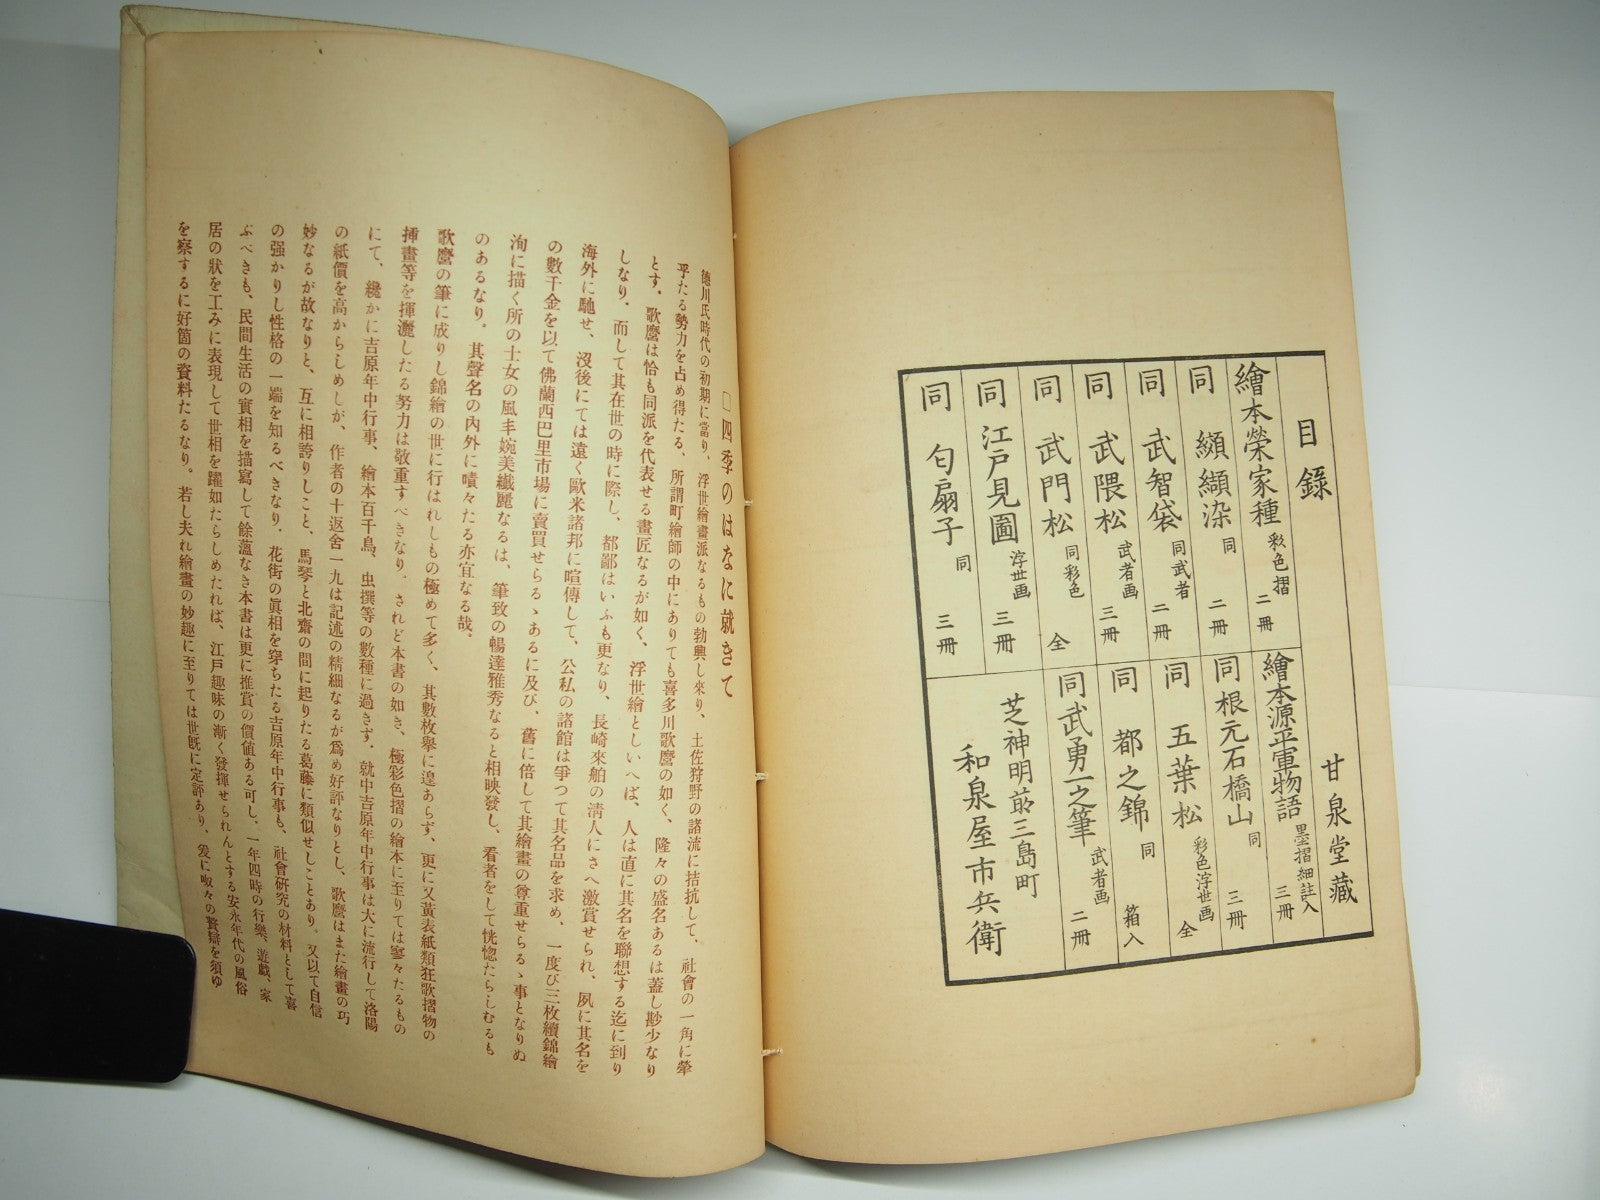 目錄
甘泉堂藏
繪本榮家種 彩色摺 二冊
同 纐纈染 同 二冊
同 武智袋 同武者 二冊
同 武隈松 武者画 三冊
同 武門松 同彩色 全
同 江戸見圖 浮世画 三冊
同 匂扇子 同 三冊
繪本源平軍物語 墨摺細註入 三冊
同根元石橋山 同 三冊
同 五葉松 彩色浮世画 全
同 都之錦 同 箱入
同武勇一之筆 武者画 二冊
芝神明前三島町
和泉屋市兵衛
□四季のはなに就きて
德川氏時代の初期に當り、浮世繪畫派なるもの勃興し來り、土佐狩野の諸流に拮抗して、社會の一角に犖
乎たる勢力を占め得たる、所謂町繪師の中にありても喜多川歌麿の如く、隆々の盛名あるは蓋し尠少なり
とす。歌麿は恰も同派を代表せる畫匠なるが如く、浮世繪としいへば、人は直に其名を聯想する迄に到り
しなり、而して其在世の時に際し、都鄙はいふも更なり、長崎來舶の淸人にさへ激賞せられ、夙に其名を
海外に馳せ、沒後にては遠く歐米諸邦に喧傳して、公私の諸館は爭つて其名品を求め、一度び三枚續錦繪
の數千金を以て佛蘭西巴里市場に賣買せらるゝあるに及び、舊に倍して其繪畫の尊重せらるゝ事となりぬ
洵に描く所の士女の風丰婉美纖麗なるは、筆致の暢達雅秀なると相映發し、看者をして恍惚たらしむるも
のあるなり。其聲名の內外に嘖々たる亦宜なる哉。
歌麿の筆に成りし錦繪の世に行はれしもの極めて多く、其數枚擧に遑あらず、更に又黃表紙類狂歌摺物の
揷畫等を揮灑したる努力は敬重すべきなり。されど本書の如き、極彩色摺の繪本に至りては寥々たるもの
にて、纔かに吉原年中行事、繪本百千鳥、虫撰等の數種に過ぎず、就中吉原年中行事は大に流行して洛陽
の紙價を高からしめしが、作者の十返舍一九は記述の精細なるが爲め好評なりとし、歌麿はまた繪畫の巧
妙なるが故なりと、互に相誇りしこと、馬琴と北齋の間に起りたる葛藤に類似せしことあり。又以て自信
の强かりし性格の一端を知るべきなり、花街の眞相を穿ちたる吉原年中行事も、社會硏究の材料として喜
ぶべきも、民間生活の實相を描寫して餘蘊なき本書は更に推賞の價値ある可し、一年四時の行樂、遊戲、家
居の狀を工みに表現して世相を躍如たらしめたれば、江戶趣味の漸く發揮せられんとする安永年代の風俗
を察するに好箇の資料たるなり。若し夫れ繪畫の妙趣に至りては世旣に定評あり、爰に呶々の贅辯を須ゆ